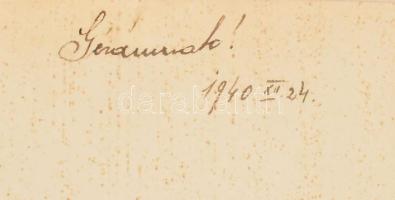 Gézámnak!
1940 XII. 24.
darabanth